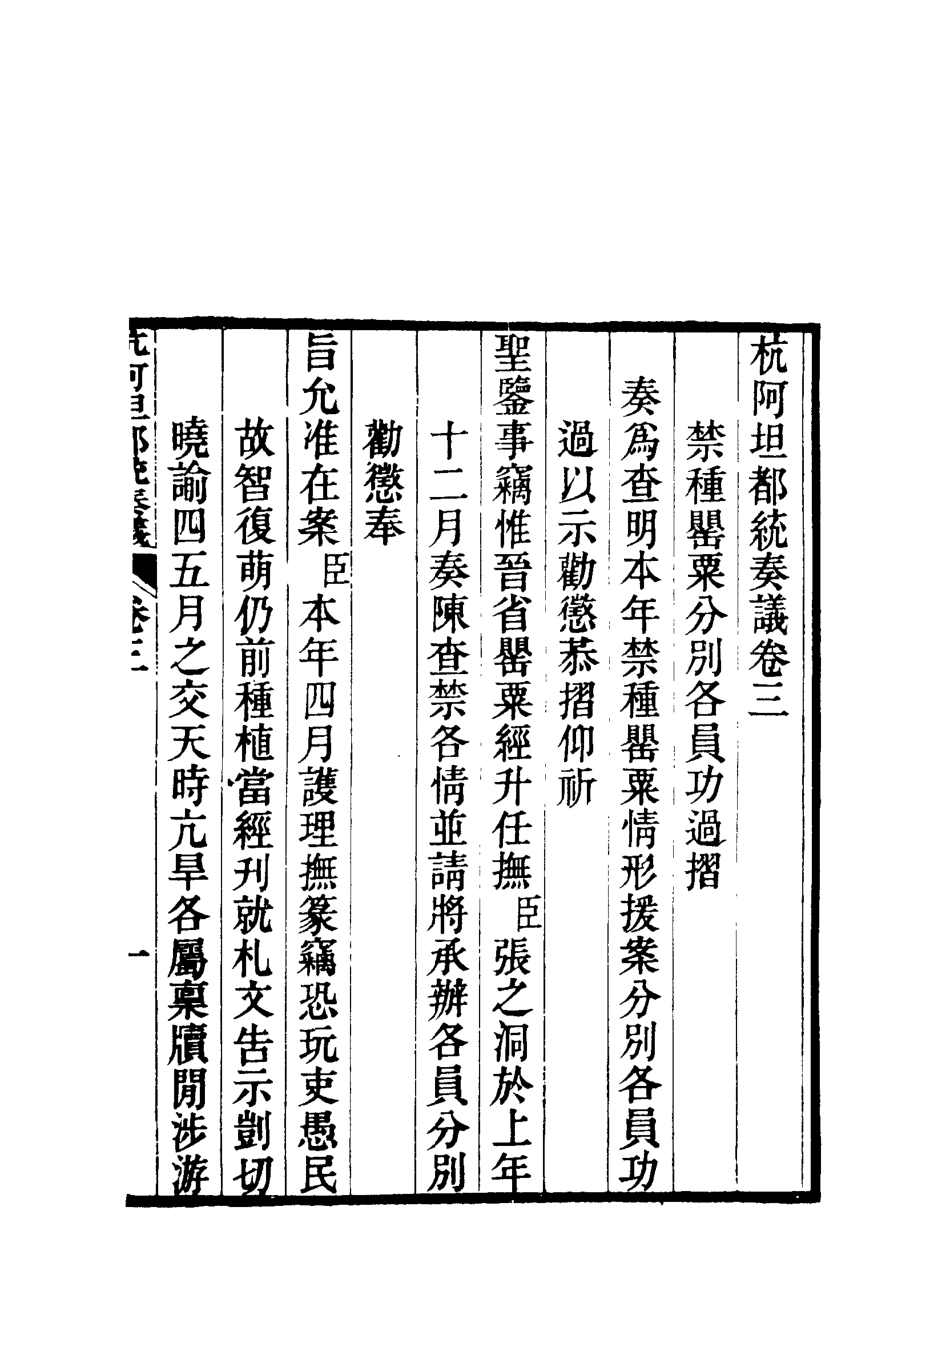 杭阿坦都統奏議卷三
禁種罌粟分別各員功過摺
奏爲查明本年禁種罌粟情形援案分別各員功
過以示勸懲恭摺仰祈
聖鑒事竊惟晉省罌粟經升任撫臣張之洞於上年
十二月奏陳查禁各情並請將承辦各員分別
勸懲奉
旨允准在案臣本年四月護理撫篆竊恐玩吏愚民
故智復萌仍前種植當經刊就札文告示剴切
曉諭四五月之交天時亢旱各屬稟牘閒涉游
杭阿坦都統奏議 卷三 一